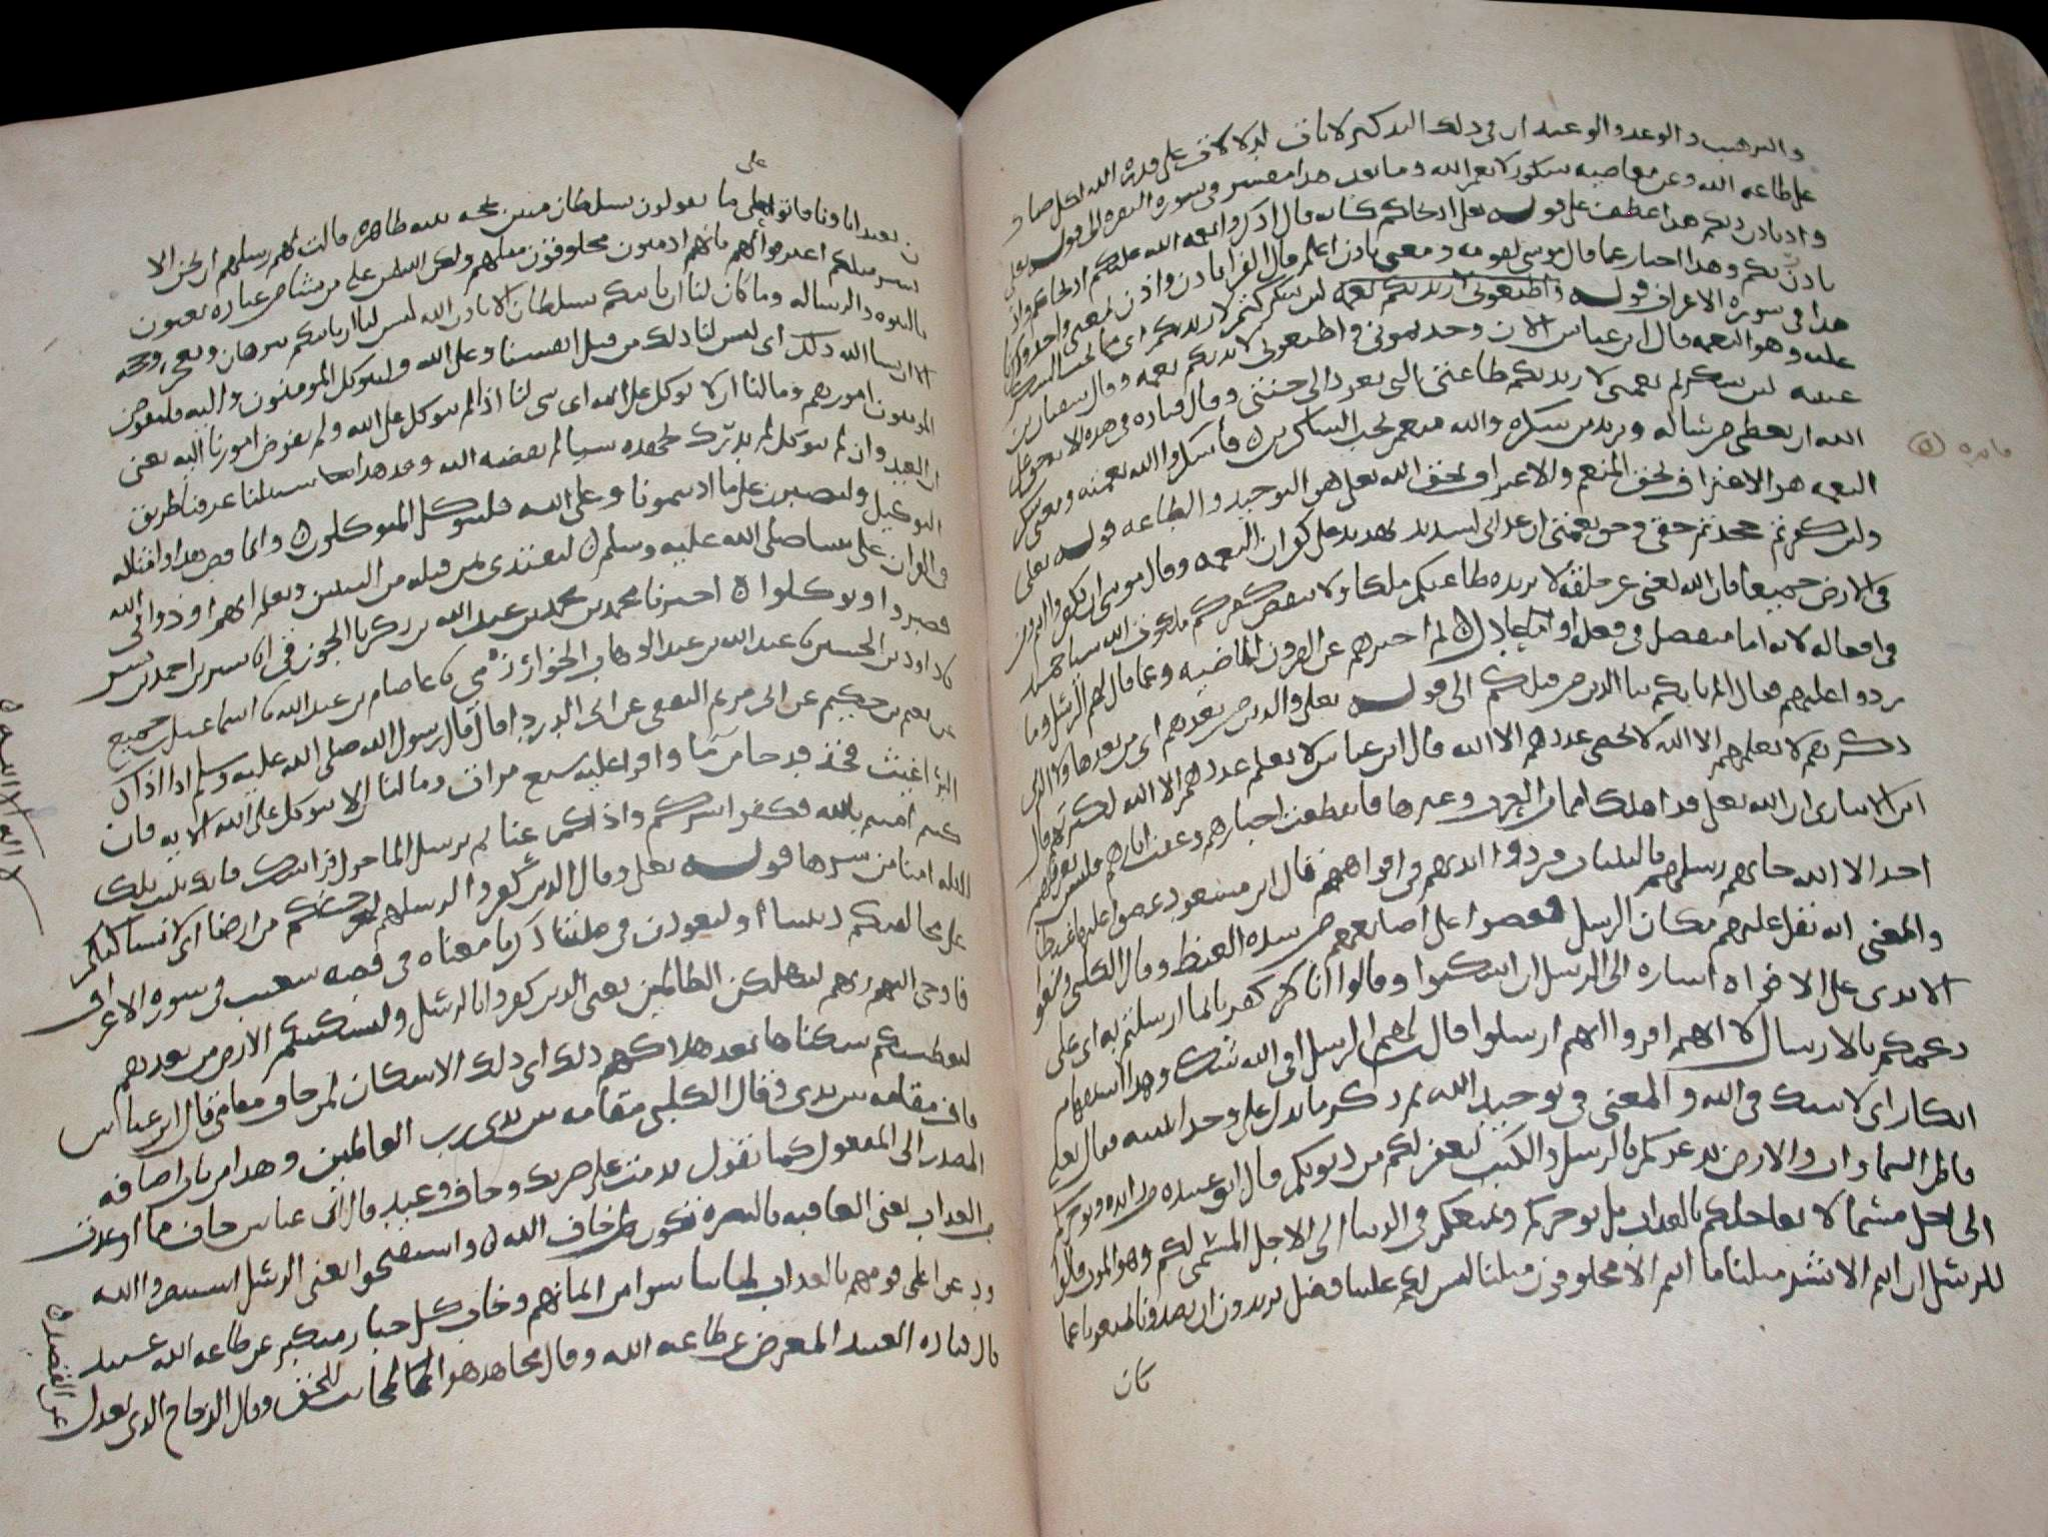 والترهيب والوعد والوعيد ان في ذلك التذكير لايات لدلالات على قدرة الله لكل صبار
على طاعة الله وعن معاصيه شكور لانعم الله وما بعد هذا مفسر في سورة البقره الى قوله تعالى
واذ تاذن ربكم هذا عطف على قوله تعالى اذ انجاكم كانه قال اذكروا نعمة الله عليكم اذ انجاكم واذ
تاذن ربكم وهذا اخبار عما قال موسى لقومه ومعنى تاذن اعلم قال الفرا تاذن واذن بمعنى واحد وذكرنا
هذا في سورة الاعراف قوله لئن شكرتم لازيدنكم اي
عليه وهو النعمه قال ابن عباس لئن وحدتموني واطعتموني لازيدنكم نعمه وقال سفيان بن
عيينه لئن شكرتم نعمتي لازيدنكم طاعتي التي تعود الى جنتي وقال قتاده في هذه الايه حق على
الله ان يعطي من ساله ويزيد من شكره والله منعم يحب الشاكرين فاشكروا الله نعمته ومعنى شكر
النعمه هو الاعتراف بحق المنعم والاعتراف بحق الله تعالى هو التوحيد والطاعه قوله تعالى
ولئن كفرتم جحدتم حقي وحق نعمتي ان عذابي لشديد تهديد على كفران النعمه وقال موسى ان تكفروا انتم ومن
في الارض جميعا فان الله لغني عن خلقه لا يزيده طاعتكم ملكا ولا ينقص كفركم من الله شيا حميد
في افعاله لانه اما متفضل في فعله او عادل ثم اخبرهم عن القرون الماضيه وعما قال لهم الرسل وما
ردوا عليهم فقال الم ياتكم نبا الذين من قبلكم الى قوله تعالى والذين من بعدهم اي من بعد هاولا الذين
ذكرتهم لا يعلمهم الا الله لا يحصي عددهم الا الله قال ابن عباس لا يعلم عددهم الا الله لكثرتهم قال
ابن الانباري ان الله تعالى قد اهلك امما من العرب وغيرها فانقطعت اخبارهم وعفت اثارهم فليس يعرفهم
احد الا الله جاتهم رسلهم بالبينات فردوا ايديهم في افواههم قال ابن مسعود عضوا عليها غيظا
والمعنى انه ثقل عليهم مكان الرسل فعضوا على اصابعهم من شدة الغيظ وقال الكلبي وضعوا
الايدي على الافواه اشاره الى الرسل ان اسكتوا وقالوا انا كفرنا بما ارسلتم به اي على
زعمكم بالارسال لا انهم اقروا انهم ارسلوا قال لهم الرسل افي الله شك وهذا استفهام
انكار اي لا شك في الله والمعنى في توحيد الله ثم ذكر ما يدل على وحدانيته فقال تعالى
فاطر السماوات والارض يدعوكم بالرسل والكتب ليغفر لكم من ذنوبكم قال ابو عبيده من زايده ويوخركم
الى اجل مسمى لا يعاجلكم بالعذاب بل يوخركم ويمتعكم في الدنيا الى الاجل المسمى لكم وهو الموت قالوا
للرسل ان انتم الا بشر مثلنا ما انتم الا مخلوقون مثلنا ليس لكم علينا فضل تريدون ان تصدونا لتمنعونا عما
كان
يعبد اباونا فاتوا على ما تقولون بسلطان مبين بحجه بينه ظاهره قالت لهم رسلهم ان نحن الا
بشر مثلكم اعترفوا لهم بانهم ادميون مخلوقون مثلهم ولكن الله يمن على من يشا من عباده يعنون
بالنبوه والرساله وما كان لنا ان ناتيكم بسلطان الا باذن الله ليس لنا ان ناتيكم ببرهان ومعجز وحجه
الا ان يشا الله ذلك اي ليس لنا ذلك من قبل انفسنا وعلى الله فليتوكل المومنون واليه فليفوض
المومنون امورهم وما لنا ان لا نتوكل على الله اي شي لنا اذا لم نتوكل على الله ولم نفوض امورنا اليه يعني
ان العبد وان لم يتوكل لم يدرك بجهده شيا لم يقضه الله وقد هدانا سبلنا عرفنا طريق
التوكيل ولنصبرن على ما اذيتمونا وعلى الله فليتوكل المتوكلون وانما قص هذا وامثاله
في القران على نبينا صلى الله عليه وسلم ليقتدي بمن قبله من النبيين ويعلم انهم اوذوا في الله
فصبروا وتوكلوا اخبرنا محمد بن محمد بن عبد الله بن زكريا الجوزقي انا بشر بن احمد بن بشر
نا داود بن الحسين نا عبد الله بن عبد الوهاب الخوارزمي نا عاصم بن عبد الله نا اسماعيل
عن
البراغيث فخذ قدحا من ما واقرا عليه سبع مرات وما لنا الا نتوكل على الله الايه فان
كنتم امنتم بالله فكفوا شركم واذاكم عنا ثم يرش الما حول فراشك فانك تبيت تلك
الليله امنا من شرها قوله تعالى وقال الذين كفروا لرسلهم لنخرجنكم من ارضنا اي لا نساكنكم
على مخالفتكم ديننا او لتعودن في ملتنا ذكرنا معناه في قصه شعيب في سورة الاعراف
فاوحى اليهم ربهم لنهلكن الظالمين يعني الذين كفروا بالرسل ولنسكننكم الارض من بعدهم
لنعطينكم سكناها بعد هلاكهم ذلك اي ذلك الاسكان لمن خاف مقامي قال ابن عباس
خاف مقامه بين يدي وقال الكلبي مقامه بين يدي رب العالمين وهذا من باب اضافه
المصدر الى المفعول كما تقول ندمت على ضربك وخاف وعيد قال ابن عباس خاف مما اوعدت
من العذاب يعني العاقبه بالنصره تكون لمن خاف الله واستفتحوا يعني الرسل استنصروا الله
ودعوا على قومهم بالعذاب لما يئسوا من ايمانهم وخاب كل جبار متكبر عن طاعه الله عنيد
قال قتاده العنيد المعرض عن طاعه الله وقال مجاهد هو المجانب للحق وقال الزجاج الذي يعدل
عن القصد